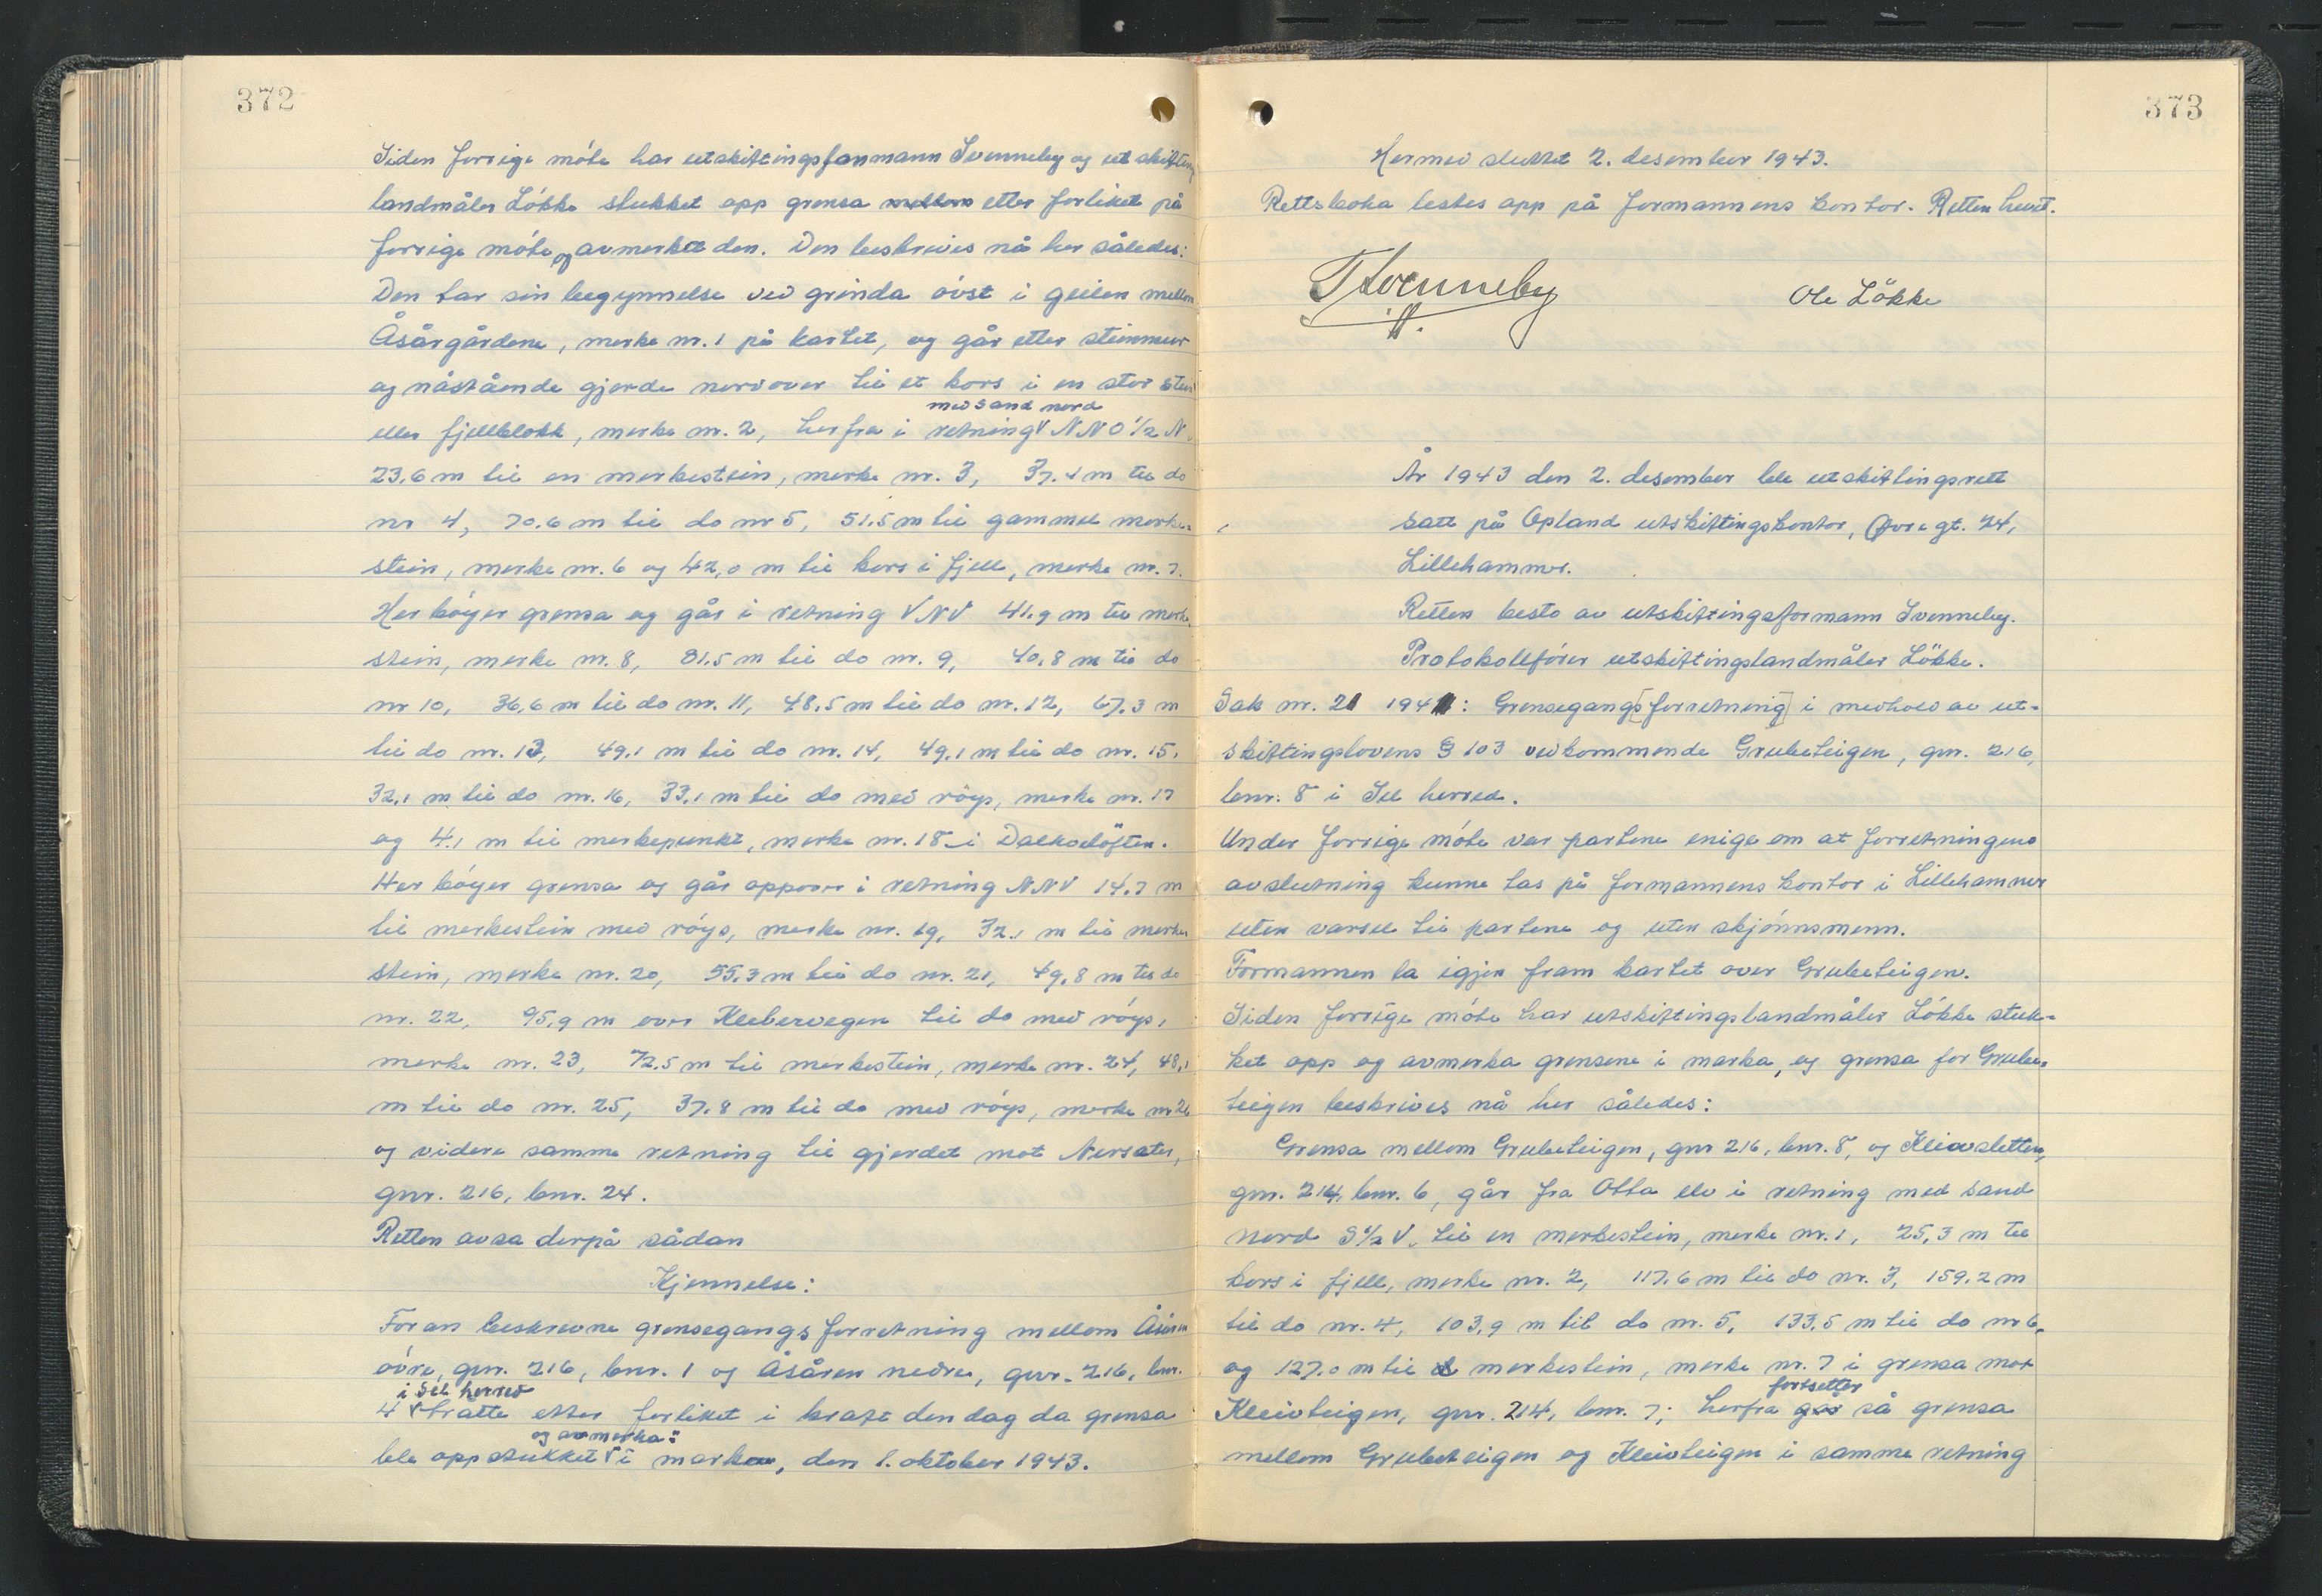 372
Siden forrige möte har utskiftingsformann Svenneby og utskiftings
landmåler Lökke stukket opp grensa mellom etter forliket på
forrige möte og avmerket den. Den beskrives nå her således:
Den tar sin begynnelse ved grinda övst i geilen mellom
Åsårgårdene, merke nr. 1 på kartet, og går etter steinmur
og nåstående gjerde nordover til et kors i en stor stein
med sand nord
eller fjellblokk, merke nr. 2, herfra i retning V NNO 1/2 N.
23,6 m til en merkestein, merke nr. 3, 37.4 m til do
nr 4, 70.6 m til do nr 5, 51.5 m til gammel merke-
stein, merke nr. 6 og 42,0 m til kors i fjell, merke nr. 7.
Her böyer grensa og går i retning VNV 41.9 m til merke-
stein, merke nr. 8, 81.5 m til do nr. 9, 40,8 m til do
nr 10, 36,6 m til do nr. 11, 48.5 m til do nr. 12, 67.3 m
til do nr. 13, 49.1 m til do nr. 14, 49.1 m til do nr. 15,
32,1 m til do nr. 16, 33,1 m til do med röys, merke nr. 17
og 4.1 m til merkepunkt, merke nr. 18 i
Her böyer grensa og går oppover i retning NNV 14.7 m
til merkestein med röys, merke nr. 19, 32.1 m til merke-
stein, merke nr. 20, 55.3 m til do nr. 21, 49,8 m til do
nr. 22, 95,9 m over Klebervegen til do med röys,
merke nr. 23, 72.5 m til merkestein, merke nr. 24, 48,1
m til do nr. 25, 37.8 m til do med röys, merke nr 26
og videre samme retning til gjerdet mot Nersæter,
gnr. 216, bnr. 24.
Retten avsa derpå sådan
Kjennelse:
Foran beskrevne grensegangsforretning mellom Åsåren
övre, gnr. 216, bnr. 1 og Åsåren nedre, gnr. 216, bnr.
i Sel herred
4 V trådte etter forliket i kraft den dag da grensa
og avmerka:
ble oppstukket V i marken, den 1. oktober 1943.
373
Hermed sluttet 2. desember 1943.
Rettsboka lestes opp på formannens kontor. Retten hevet.
T Svenneby Ole Lökke
År 1943 den 2. desember ble utskiftingsrett
satt på Opland utskiftingskontor, gt. 24,
Lillehammer.
Retten besto av utskiftingsformann Svenneby.
Protokollförer utskiftingslandmåler Lökke.
Sak nr. 21 1941: Grensegangs[forretning] i medhold av ut-
skiftingslovens § 103 vedkommende Grubeteigen, gnr. 216,
bnr. 8 i Sel herred.
Under forrige möte var partene enige om at forretningens
avslutning kunne tas på formannens kontor i Lillehammer
uten varsel til partene og uten skjönnsmenn.
Formannen la igjen fram kartet over Grubeteigen.
Siden forrige möte har utskiftingslandmåler Lökke stuk-
ket opp og avmerka grensene i marka, og grensa for Grube-
teigen beskrives nå her således:
Grensa mellom Grubeteigen, gnr 216, bnr. 8, og Kleivsletten,
gnr. 214, bnr. 6, går fra Otta elv i retning med sand
nord S 1/2 V. til en merkestein, merke nr. 1, 25,3 m til
kors i fjell, merke nr. 2, 117.6 m til do nr. 3, 159.2 m
til do nr. 4, 103,9 m til do nr. 5, 133,5 m til do nr 6,
og 127.0 m til d merkestein, merke nr. 7 i grensa mot
fortsetter
Kleivteigen, gnr. 214, bnr. 7; herfra går så grensa
mellom Grubeteigen og Kleivteigen i samme retning